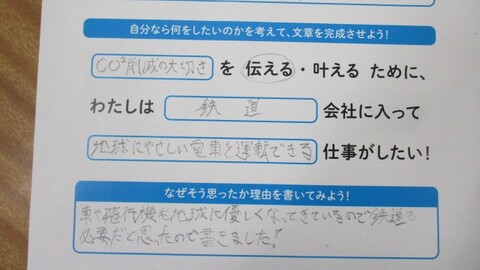 自分なら何をしたいのかを考えて、文章を完成させよう!
CO²削減の大切さ を 伝える・叶える ために、
わたしは 鉄道 会社に入って
地球にやさしい電車を運転できる 仕事がしたい!
なぜそう思ったか理由を書いてみよう!
車や飛行機も地球に優しくなってきているので鉄道も
必要だと思ったので書きました!